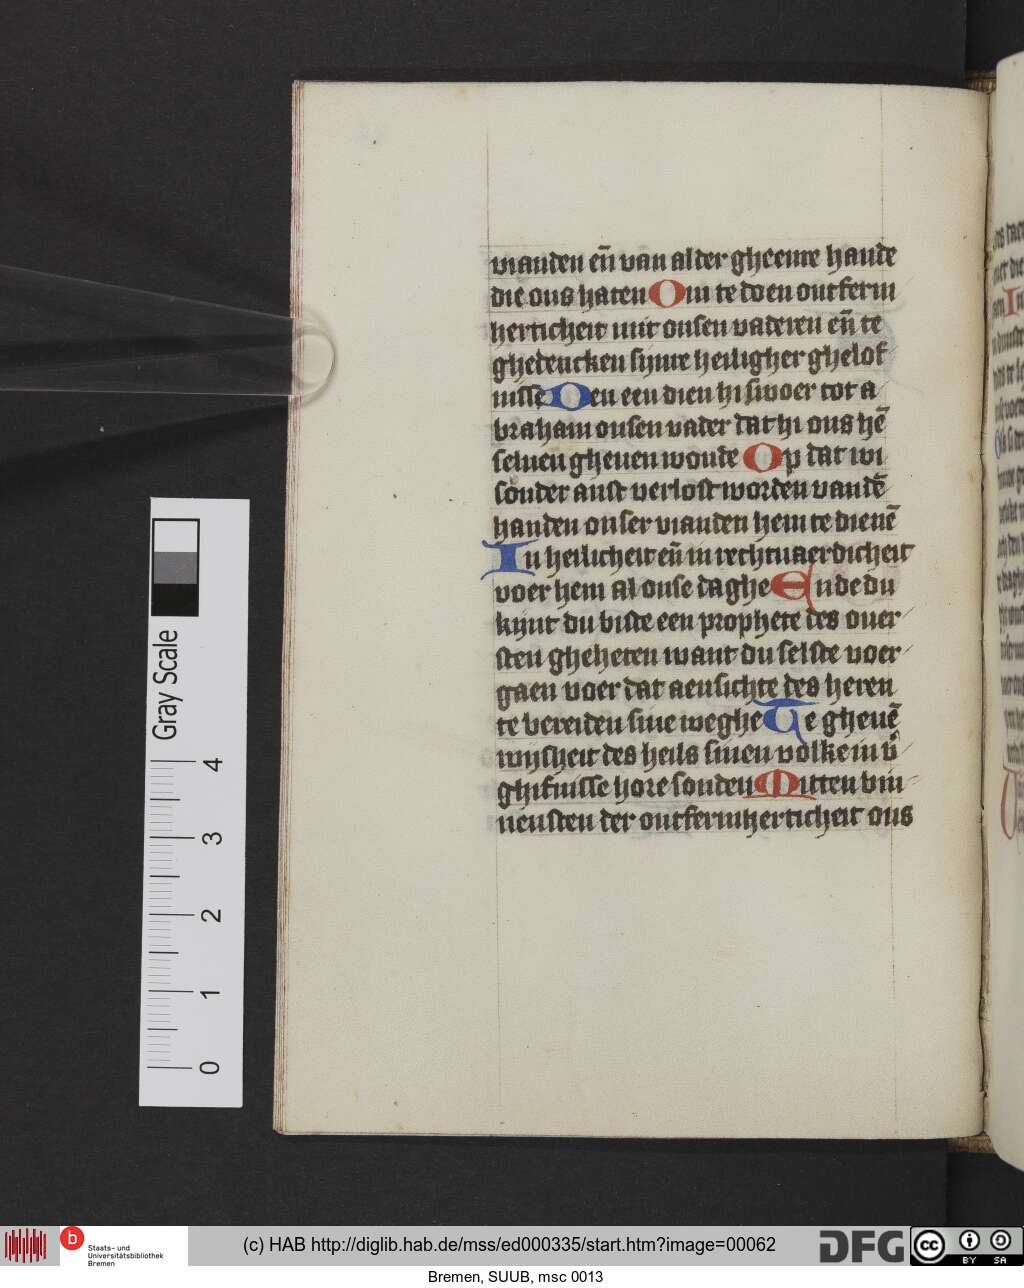 vianden en̄ van alder gheenre hande
die ons haten Om te doen ontferm
herticheit mit onsen vaderen en̄ te
ghedencken sijnre heiligher ghelof
nisse Den een dien hi swoer tot a
braham onsen vader dat hi ons hē
seluen gheuen woude Op dat wi
sonder anst verlost worden vandē
handen onser vianden hem te dienē
In heilicheit en̄ in rechtuaerdicheit
voer hem al onse daghe Ende du
kijnt du biste een prophete des ouer
sten gheheten want du selste voer
gaen voer dat aensichte des heren
te bereiden sine weghe Te gheuē
wijsheit des heils sinen volke in v̄
ghifnisse hore sonden Mitten bin
nensten der ontfermherticheit ons
Gray Scale
4
3
2
1
0
b
Staats- und
Universitätsbibliothek
Bremen
(c) HAB http://diglib.hab.de/mss/ed000335/start.htm?image=00062
DFG
cc BY SA
Bremen, SUUB, msc 0013